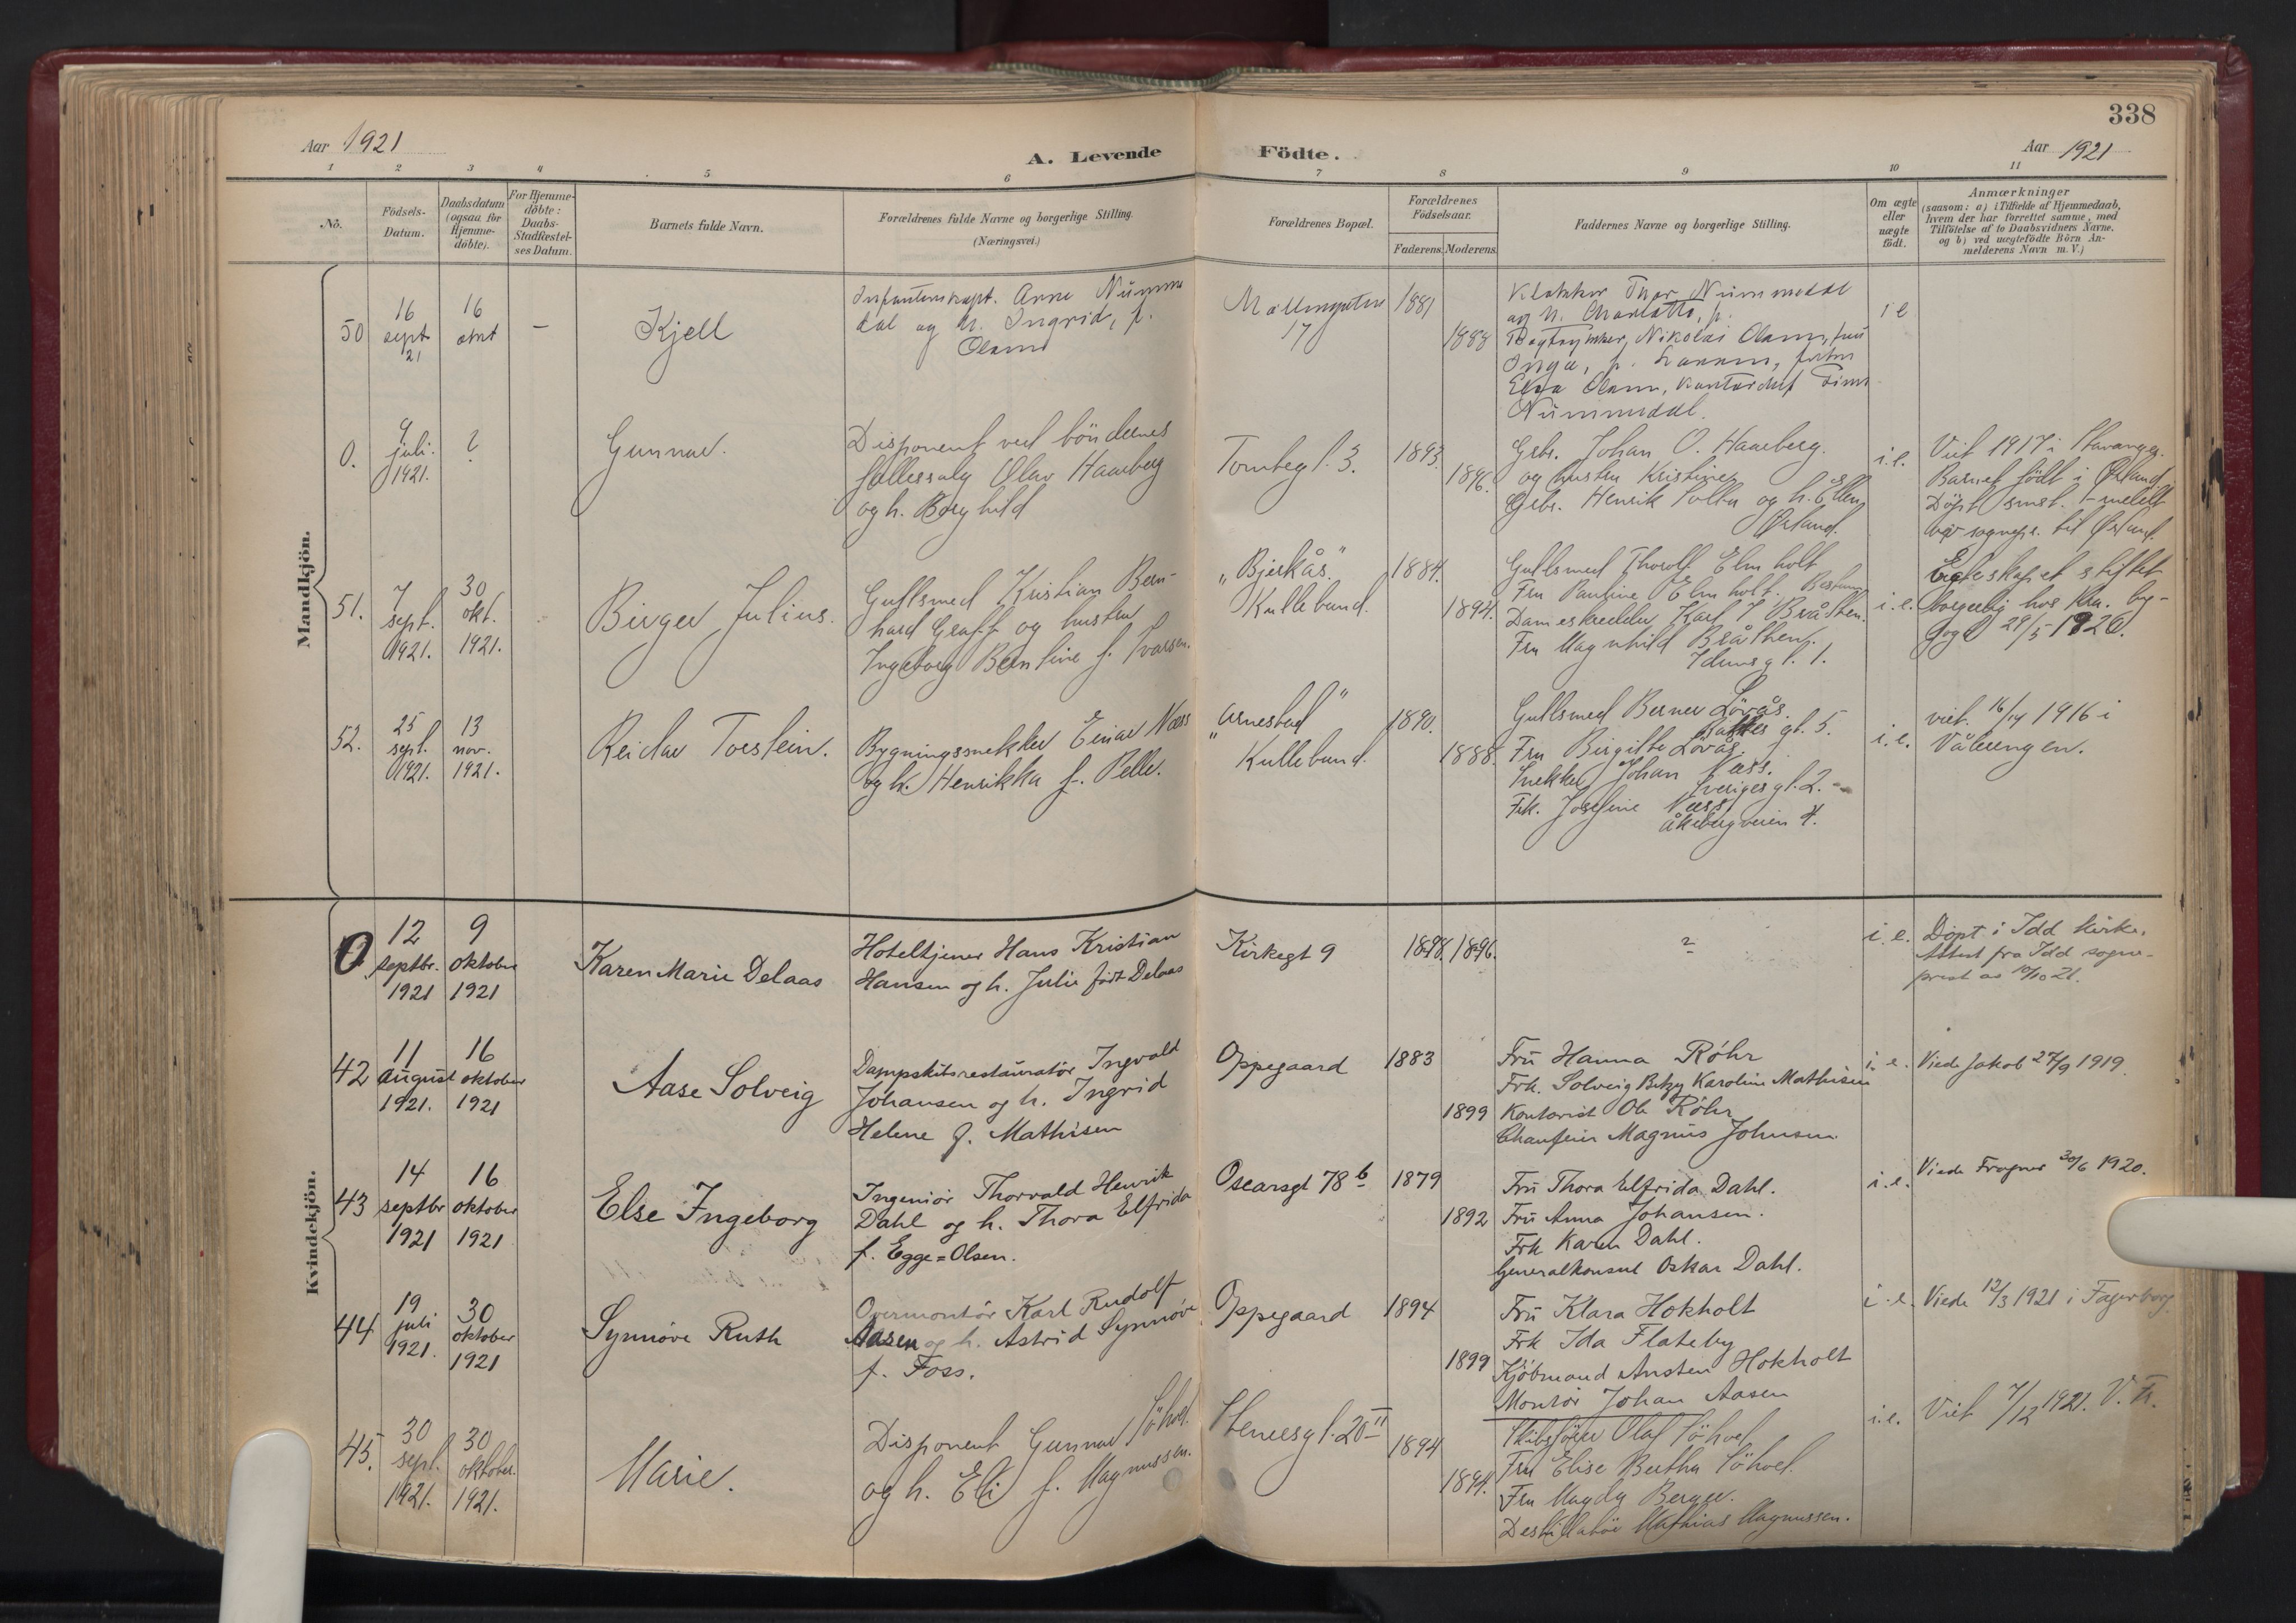 338
Aar 1921
A. Levende Födte.
Aar 1921
1 2 3 4 5 6 7 8 9 10 11
No.
Födsels-Datum.
Daabsdatum (ogsaa for Hjemme-döbte).
For Hjemme-döbte: Daabs-Stadfæstel-ses Datum.
Barnets fulde Navn.
Forældrenes fulde Navne og borgerlige Stilling.
(Næringsvei.)
Forældrenes Bopæl.
Forældrenes Födselsaar.
Faderens. Moderens.
Faddernes Navne og borgerlige Stilling.
Om ægte eller uægte födt.
Anmærkninger
(saasom: a) i Tilfælde af Hjemmedaab,
hvem der har forrettet samme, med
Tilföielse af to Daabsvidners Navne,
og b) ved uægtefödte Börn An-
melderens Navn m. V.)
Mandkjön.
50
16 sept 21
16
–
Kjell
dal og h. Ingrid, f.
17
1881
1888
og h. Charlotte, f.
Nikolai
Inga, f.
Nummedal.
i e
0.
9 juli. 1921.
?
Gunnar.
Disponent ved böndernes
fellessalg Olav Haarberg
og h. Borghild
1893.
1896.
Gbr. Johan O. Haarberg.
og hustru Kristine,
Gbr. Henrik og h. Ellen,
Ørland.
i.e.
Viet 1917 i Stavanger.
Barnet födt i Ørland.
Döpt smst.
sognepr. til Ørland.
51.
7 sept. 1921.
30 okt. 1921.
Birger Julius.
Gullsmed Kristian Bern-
hard Graff og hustru
Ingeborg Berntine f. Ivarsen.
"Bjerkås."
Kullebund.
1884.
1894.
Gullsmed Thorolf Elmholt
Fru Pauline Elmholt. Bestum
Dameskredder Karl J. Bråthen.
Fru Magnhild Bråthen.
Idunsgt. 1.
i.e.
Egteskapet stiftet
borgerlig hos Kra. by-
fogd 29/5 1920.
52.
25 sept. 1921.
13 nov. 1921.
Reidar Torstein.
Bygningssnekker Einar Næss
og h. Henrikka f. Pelle.
"Arnestad"
Kullebund.
1890.
1888.
Gullsmed Berner Lövås.
gt. 5.
Fru Birgitte Lövås.
Snekker Johan Næss.
Sverigesgt. 2.
Frk. Josefine Næss
Åkebergveien 4.
i.e.
viet. 1916 i
Vålerengen.
Kvindekjön.
0
12 septbr. 1921
9 oktober 1921
Karen Marie Delaas
Hoteltjener Hans Kristian
Hansen og h. Julie født Delaas
Kirkegt 9
1898. 1896.
?
i.e.
Döpt i Idd kirke.
Attest fra Idd sogne-
prest av 10/10 21.
42
11 august 1921.
16 oktober 1921
Aase Solveig
Dampskibsrestauratør Ingvald
Johansen og h. Ingrid
Helene f. Mathisen
Oppegaard
1883
1899
Fru Hanna Røhr
Frk. Solveig Betzy Karoline Mathisen
Kontorist Ole Røhr
Chauffeur Magnus Johnsen
i.e.
Viede Jakob 27/9 1919.
43
14 septbr 1921
16 oktober 1921
Else Ingeborg
Ingeniør Thorvald Henrik
Dahl og h. Thora Elfrida
f. Egge=Olsen.
Oscarsgt 78 b
1879
1892
Fru Thora Elfrida Dahl.
Fru Anna Johansen.
Frk Karen Dahl.
Generalkonsul Oskar Dahl.
i.e.
Viede Frogner 30/6 1920.
44
19 juli 1921.
30 oktober 1921
Synnøve Ruth
Overmontør Karl Rudolf
Aasen og h. Astrid Synnøve
f. Foss.
Oppegaard
1894
1899
Fru Klara Hokholt
Frk Ida Flateby
Kjøbmand Ansten Hokholt
Montør Johan Aasen
i.e.
Viede 12/3 1921 i Fagerborg.
45.
30 sept. 1921.
30 oktober. 1921.
Marie.
Disponent Gunnar
og h. Eli f. Magnussen.
Stenersgt. 20 II
1894
1894.
Skibsfører Olaf
Fru Elise Bertha
Fru Magda Berger.
Destillatör Mathias Magnussen.
i.e.
Viet 7/12 1921. V. Fr.